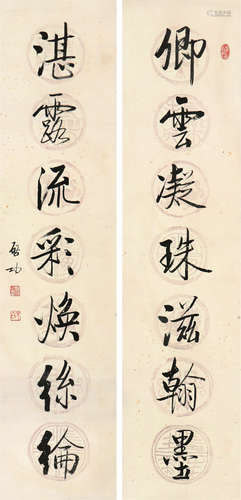 卿雲凝珠滋翰墨
湛露流彩煥絲綸
啓功